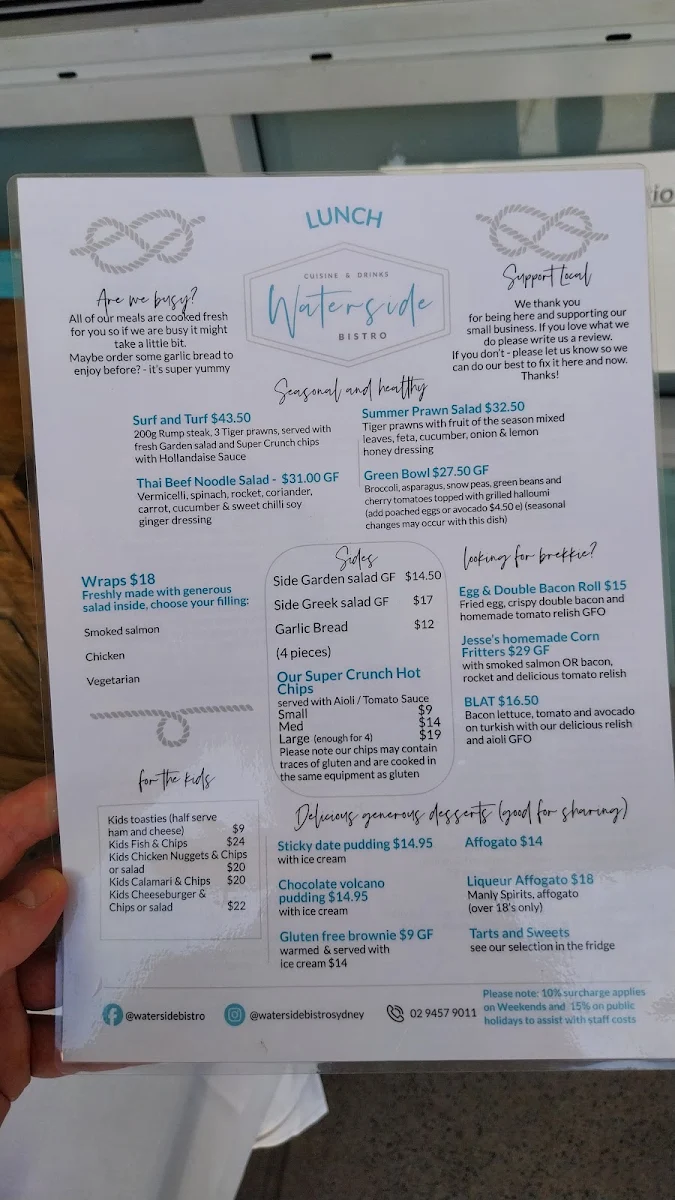 LUNCH
CUISINE & DRINKS
Waterside
BISTRO
Are we busy?
All of our meals are cooked fresh
for you so if we are busy it might
take a little bit.
Maybe order some garlic bread to
enjoy before? - it's super yummy
Support Local
We thank you
for being here and supporting our
small business. If you love what we
do please write us a review.
If you don't - please let us know so we
can do our best to fix it here and now.
Thanks!
Seasonal and healthy
Surf and Turf $43.50
200g Rump steak, 3 Tiger prawns, served with
fresh Garden salad and Super Crunch chips
with Hollandaise Sauce
Thai Beef Noodle Salad - $31.00 GF
Vermicelli, spinach, rocket, coriander,
carrot, cucumber & sweet chilli soy
ginger dressing
Summer Prawn Salad $32.50
Tiger prawns with fruit of the season mixed
leaves, feta, cucumber, onion & lemon
honey dressing
Green Bowl $27.50 GF
Broccoli, asparagus, snow peas, green beans and
cherry tomatoes topped with grilled halloumi
(add poached eggs or avocado $4.50 e) (seasonal
changes may occur with this dish)
Wraps $18
Freshly made with generous
salad inside, choose your filling:
Smoked salmon
Chicken
Vegetarian
Sides
Side Garden salad GF $14.50
Side Greek salad GF $17
Garlic Bread $12
(4 pieces)
Our Super Crunch Hot
Chips
served with Aioli / Tomato Sauce
Small $9
Med $14
Large (enough for 4) $19
Please note our chips may contain
traces of gluten and are cooked in
the same equipment as gluten
looking for brekkie?
Egg & Double Bacon Roll $15
Fried egg, crispy double bacon and
homemade tomato relish GFO
Jesse's homemade Corn
Fritters $29 GF
with smoked salmon OR bacon,
rocket and delicious tomato relish
BLAT $16.50
Bacon lettuce, tomato and avocado
on turkish with our delicious relish
and aioli GFO
for the kids
Kids toasties (half serve
ham and cheese) $9
Kids Fish & Chips $24
Kids Chicken Nuggets & Chips
or salad $20
Kids Calamari & Chips $20
Kids Cheeseburger &
Chips or salad $22
Delicious generous desserts (good for sharing)
Sticky date pudding $14.95
with ice cream
Chocolate volcano
pudding $14.95
with ice cream
Gluten free brownie $9 GF
warmed & served with
ice cream $14
Affogato $14
Liqueur Affogato $18
Manly Spirits, affogato
(over 18's only)
Tarts and Sweets
see our selection in the fridge
@watersidebistro
@watersidebistrosydney
02 9457 9011
Please note: 10% surcharge applies
on Weekends and 15% on public
holidays to assist with staff costs